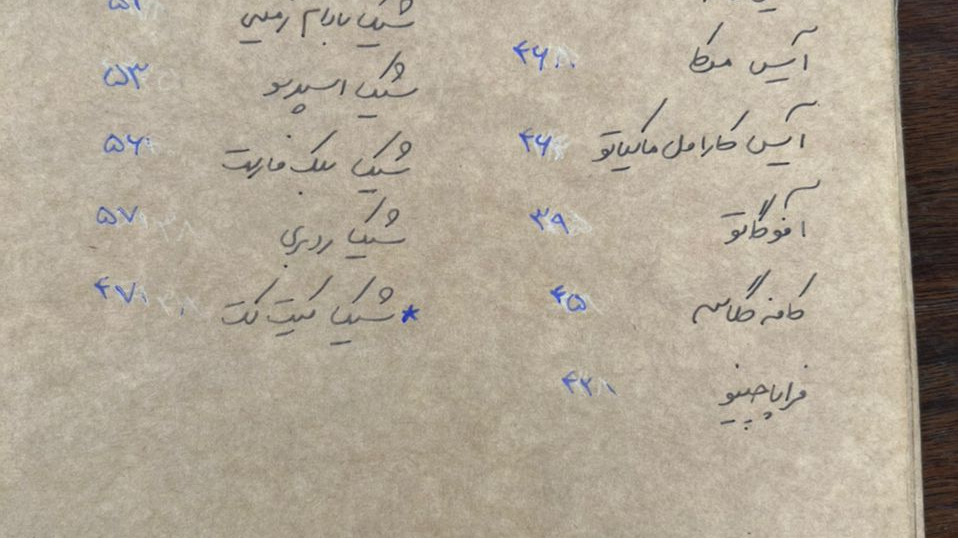 آیس موکا ۴۶
آیس کارامل ماکیاتو ۴۶
آفوگاتو ۳۹
کافه گلاسه ۴۵
فراپاچینو ۴۲
شیک بادام زمینی ۵۲
شیک اسپرسو ۵۳
شیک بلک فارست ۵۶
شیک ردبری ۵۷
* شیک کیت کت ۴۷